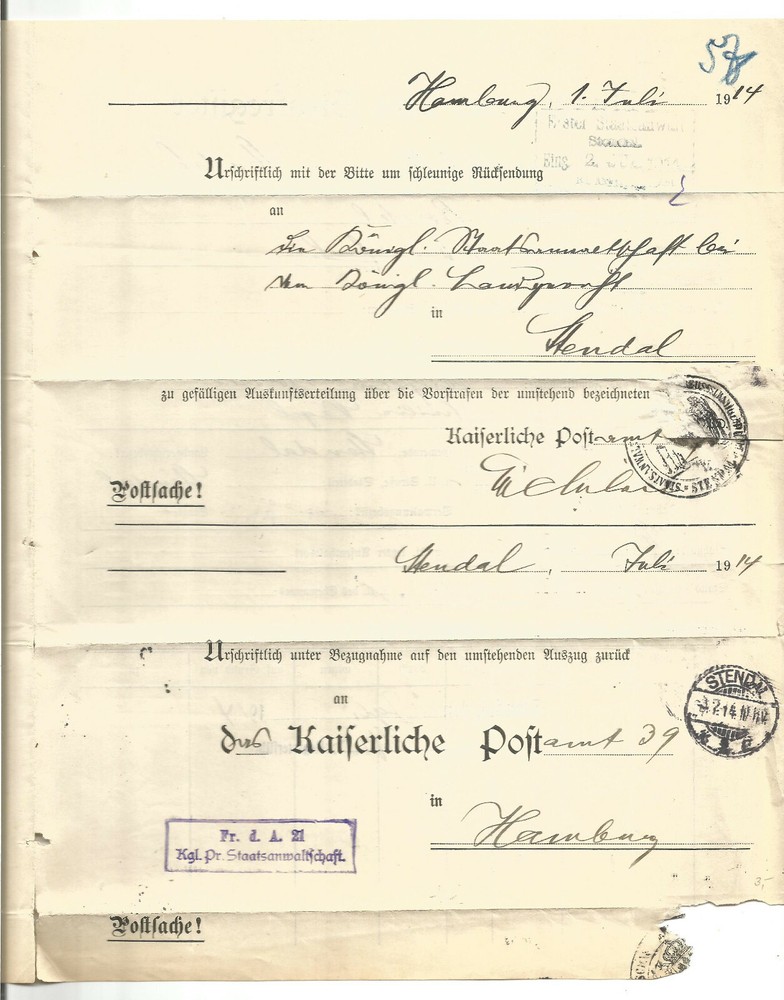 57
Hamburg, 1. Juli 1914
Erster Staatsanwalt
Stendal.
Eing. 2.
Urschriftlich mit der Bitte um schleunige Rücksendung
an
die Königl. Staatsanwaltschaft bei
dem Königl. Landgericht
in
Stendal
zu gefälligen Auskunftserteilung über die Vorstrafen der umstehend bezeichneten
Kaiserliche Postamt
Postsache!
Stendal, Juli 1914
Urschriftlich unter Bezugnahme auf den umstehenden Auszug zurück
an
STENDAL
das Kaiserliche Postamt 39
in
Hamburg
Fr. d. A. 21
Kgl. Pr. Staatsanwaltschaft.
3,-
Postsache!